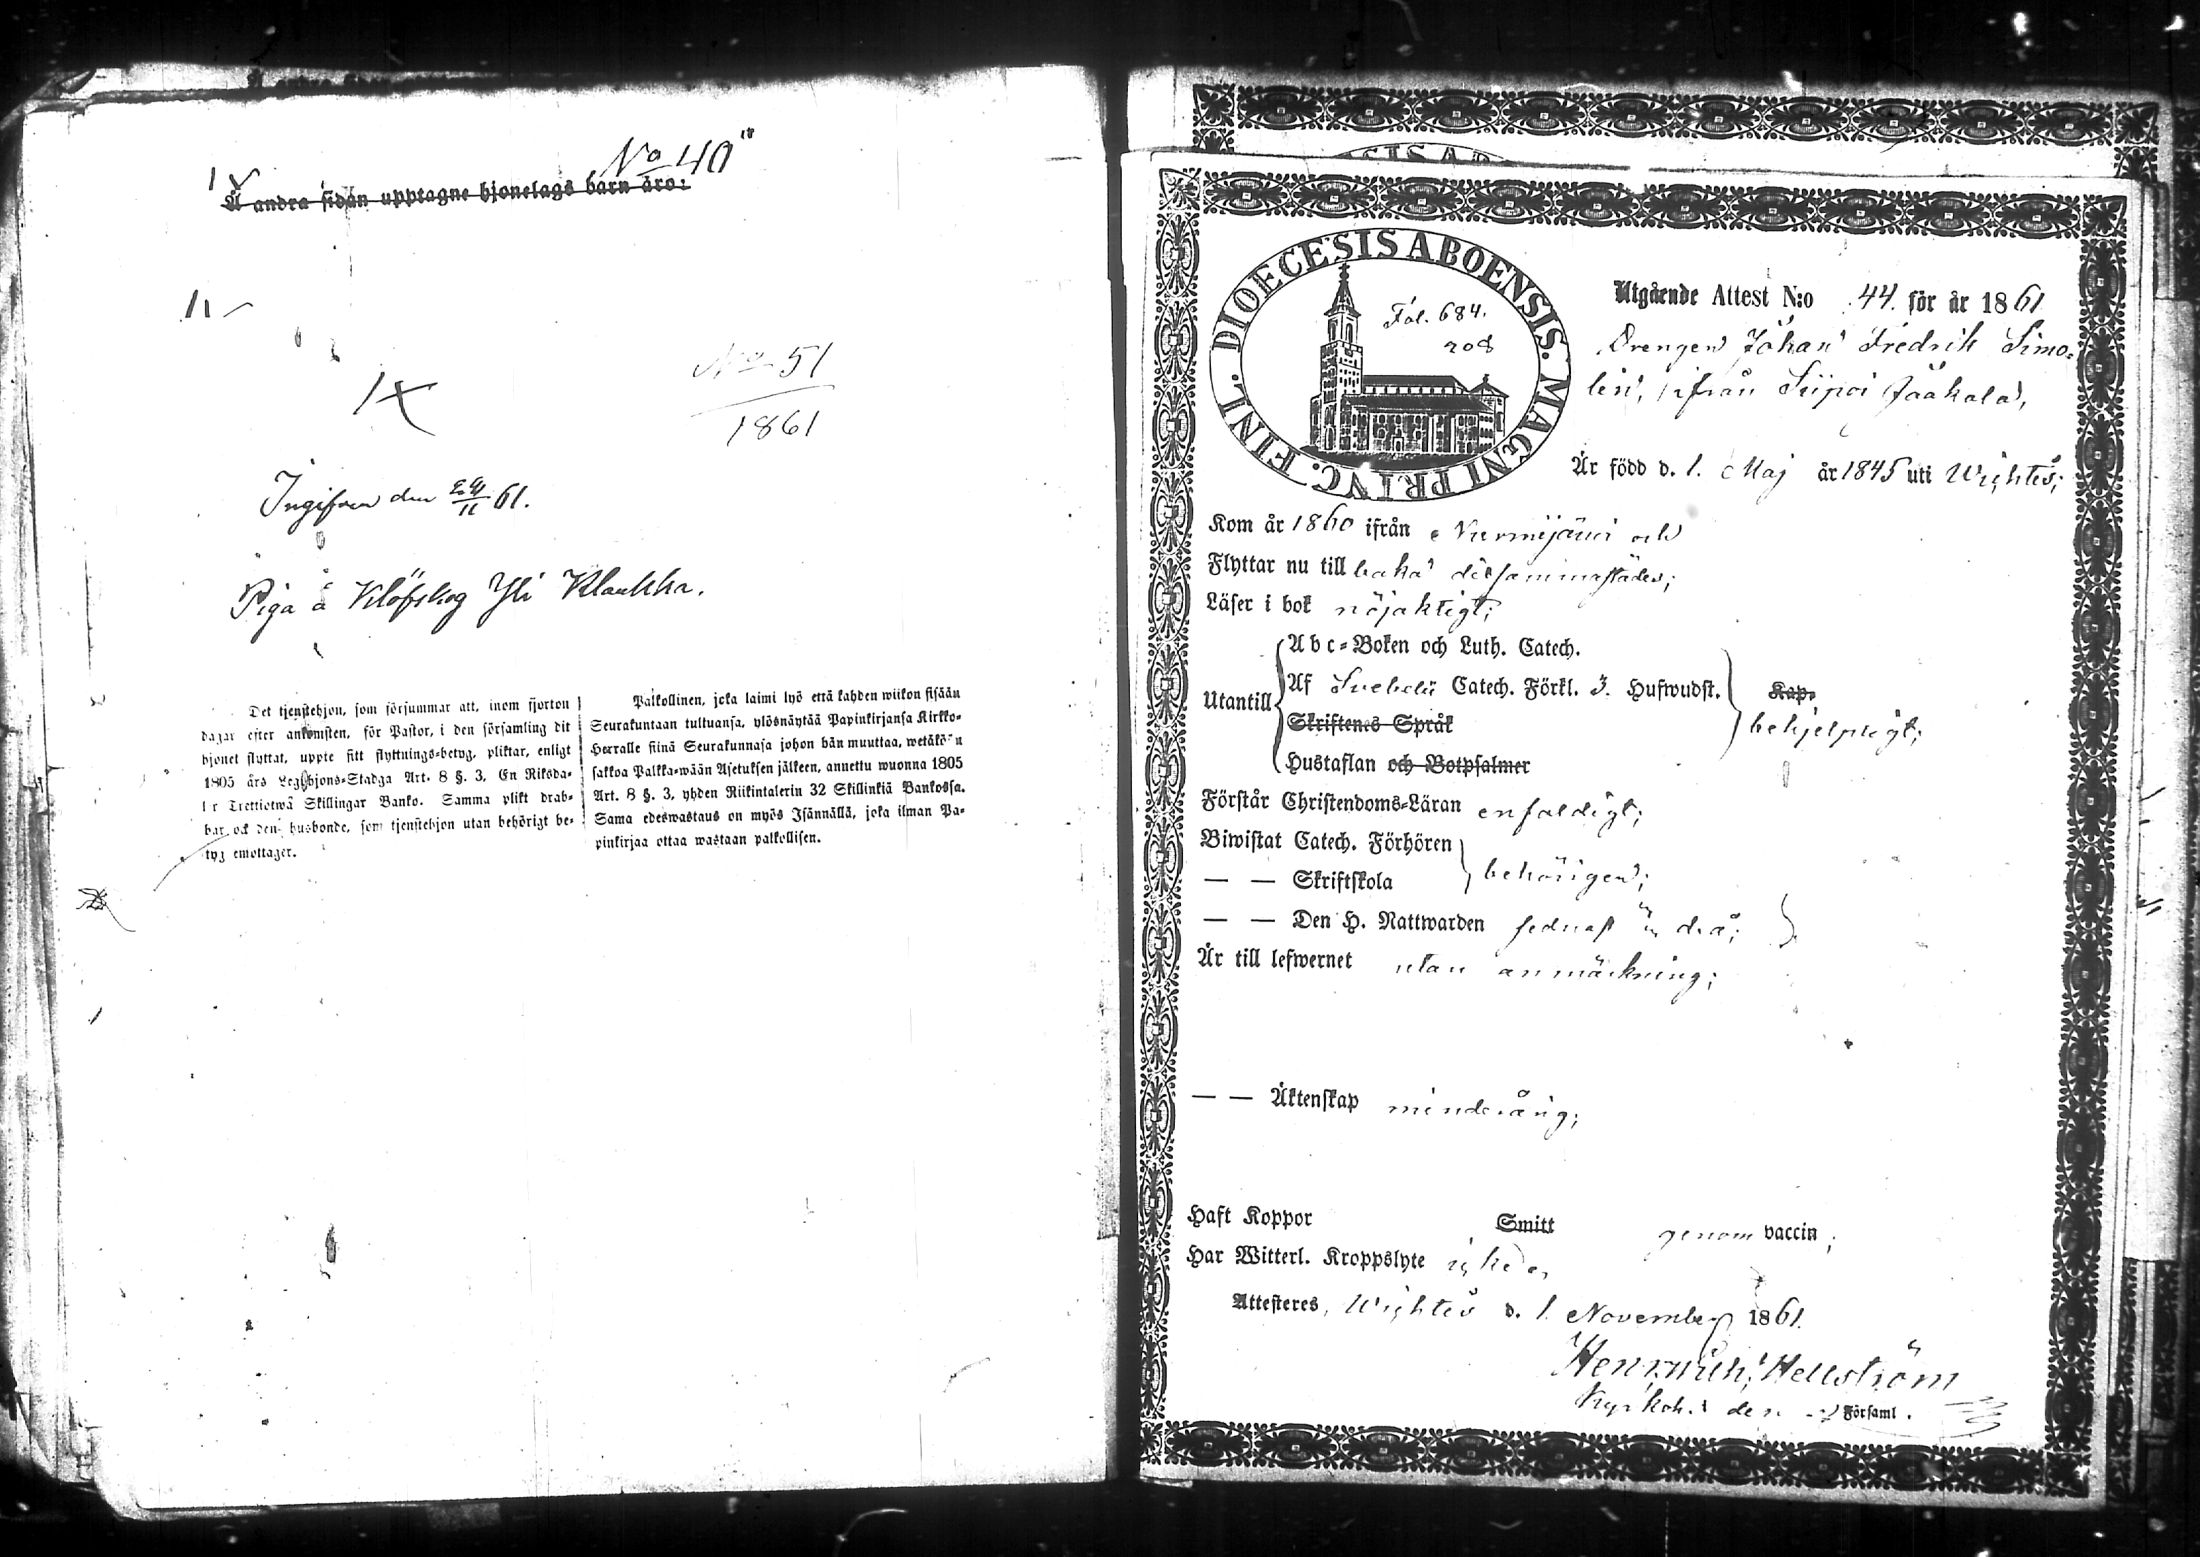 No 40
Å andra sidan upptagne hjonelags barn äro:
No 51
1861
Ingifven den 24/11 61.
Piga å Klöfskog Yli Klaukka.
Det tjenstehjon, som försummar att, inom fjorton
dagar efter ankomsten, för Pastor, i den församling dit
hjonet flyttat, uppte sitt flyttnings-betyg, pliktar, enligt
1805 års Legohjons-Stadga Art. 8 §. 3, En Riksda-
ler Trettiotwå Skillingar Banko. Samma plikt drab-
bar ock den husbonde, som tjenstehjon utan behörigt be-
tyg emottager.
Palkollinen, joka laimi lyö että kahden wiikon sisään
Seurakuntaan tultuansa, ylösnäytää Papinkirjansa Kirkko-
Herralle siinä Seurakunnasa johon hän muuttaa, wetäkö'n
sakkoa Palkka-wään Asetuksen jälkeen, annettu wuonna 1805
Art. 8 §. 3, yhden Riikintalerin 32 Skillinkiä Bankossa.
Sama edeswastaus on myös Isännällä, joka ilman Pa-
pinkirjaa ottaa wastaan palkollisen.
DIOECESIS ABOENSIS. MAGNI PRIVC. FINL.
Fol. 684.
208
Utgående Attest N:o 44. för år 1861
Drengen Johan Fredrik Simo-
lin, ifrån Suipoi Jaakala,
Är född d. 1. Maj år 1845 uti Wichtis;
Kom år 1860 ifrån Nurmijärvi och
Flyttar nu till baka dersammastädes;
Läser i bok nöjaktigt;
Utantill
Abc-Boken och Luth. Catech.
Af Svebelii Catech. Förkl. 3. Hufwudst. Kap.
Skriftenes Språk behjelpligt;
Hustaflan och Botpsalmer
Förstår Christendoms-Läran enfaldigt;
Biwistat Catech. Förhören
— — Skriftskola behörigen;
— — Den H. Nattwarden sednast
Är till lefwernet utan anmärkning;
— — Äktenskap minderårig;
Haft Koppor Smitt genom vaccin;
Har Witterl. Kroppslyte icke
Attesteres, Wichtis d. 1. November 1861.
Hellström
Kyrkoh. Församl.